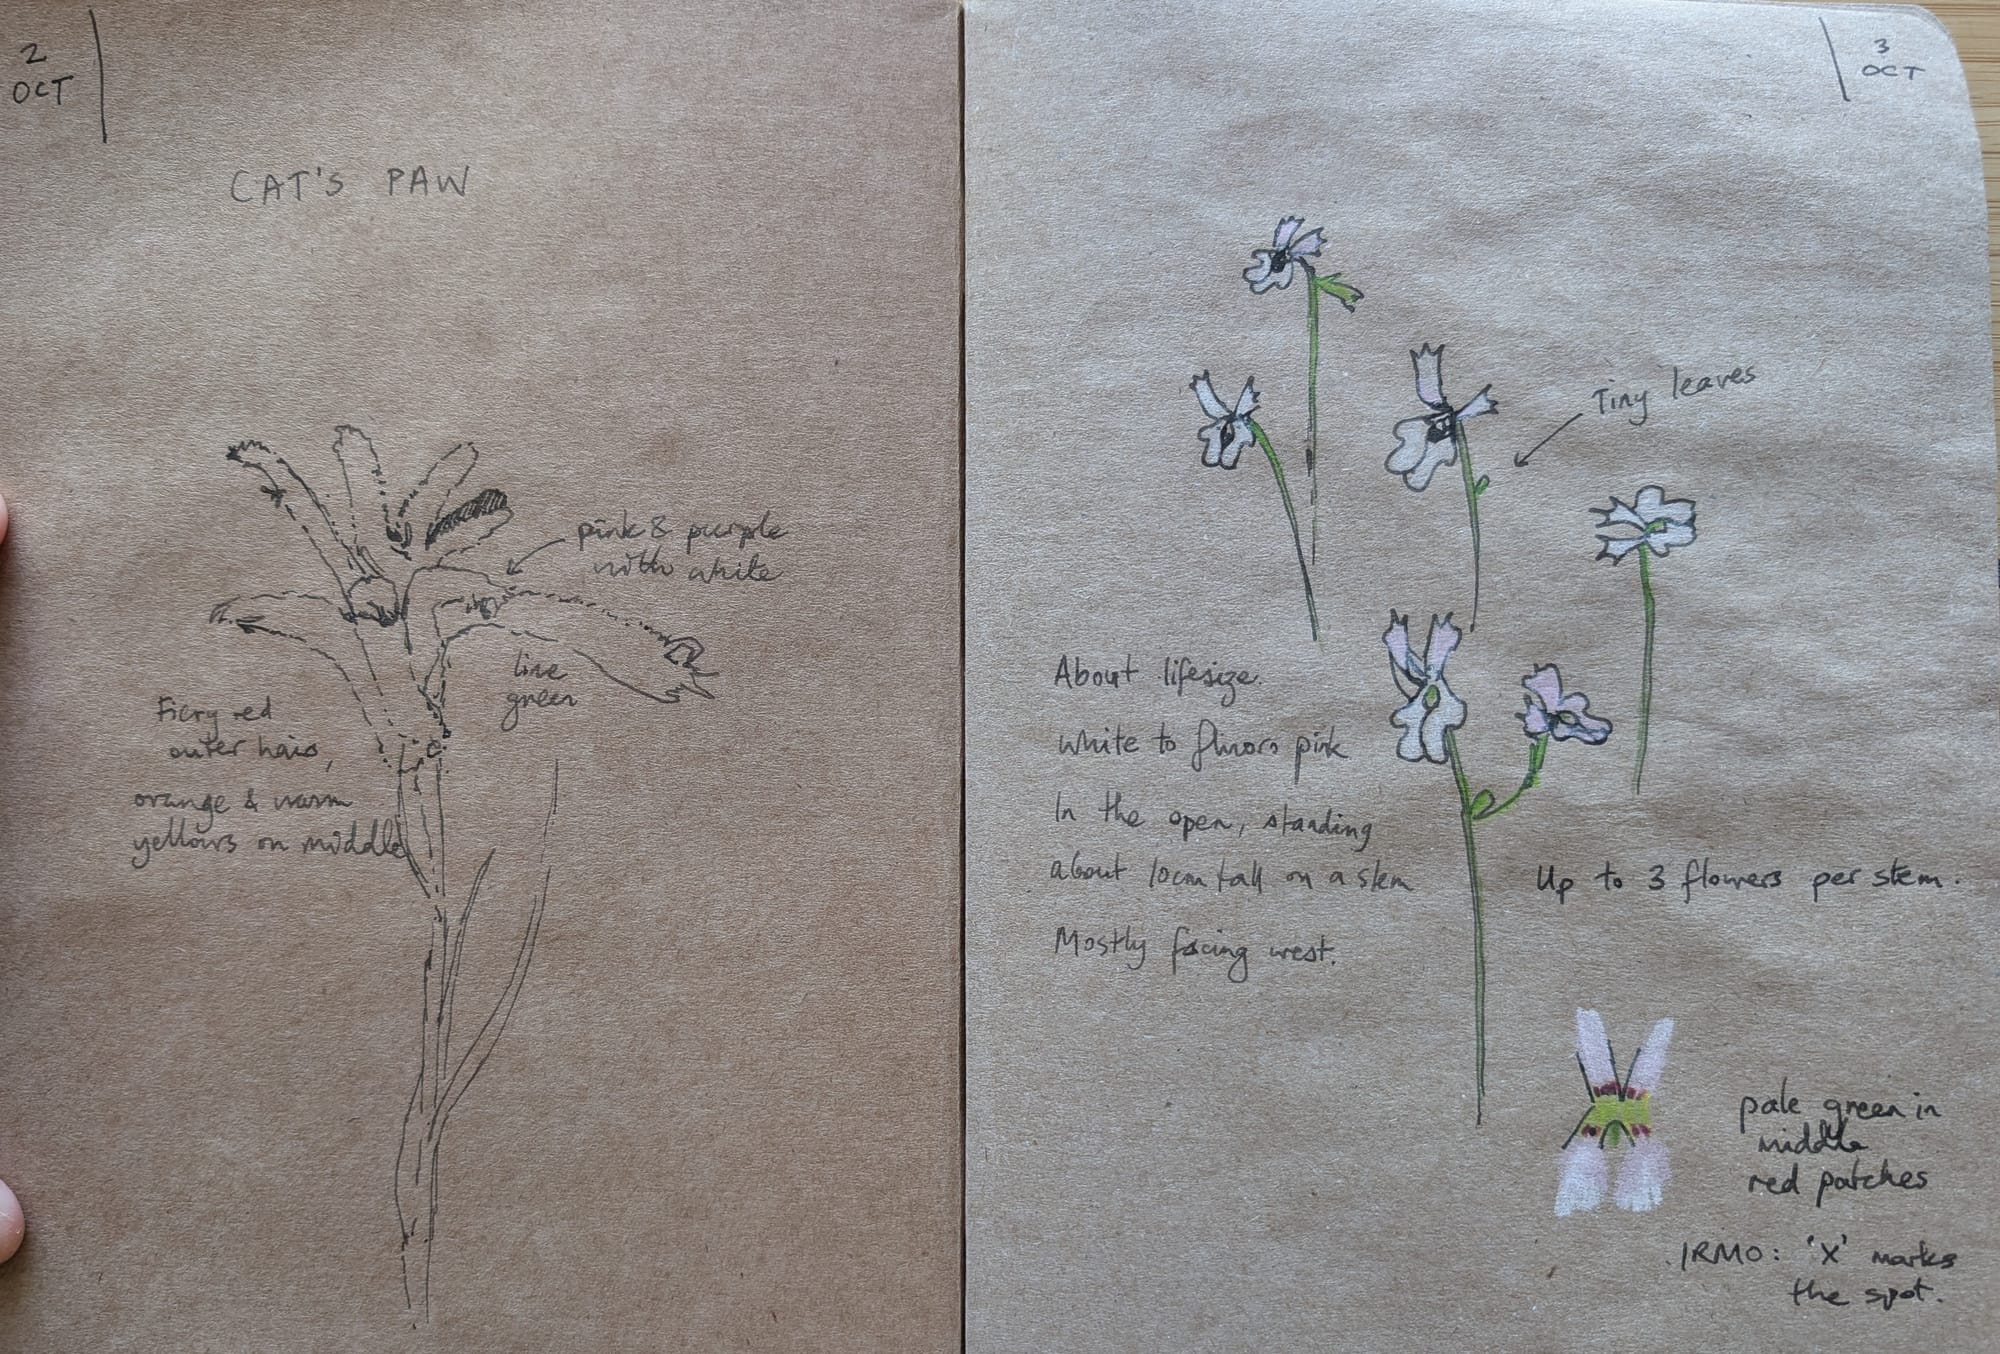 2
OCT
CAT'S PAW
pink & purple
with white
lime
green
Fiery red
outer hairs,
orange & warm
yellows on middle
3
OCT
Tiny leaves
About lifesize.
white to fluoro pink
In the open, standing
about 10cm tall on a stem
Mostly facing west.
Up to 3 flowers per stem.
pale green in
middle
red patches
IRMO: 'X' marks
the spot.